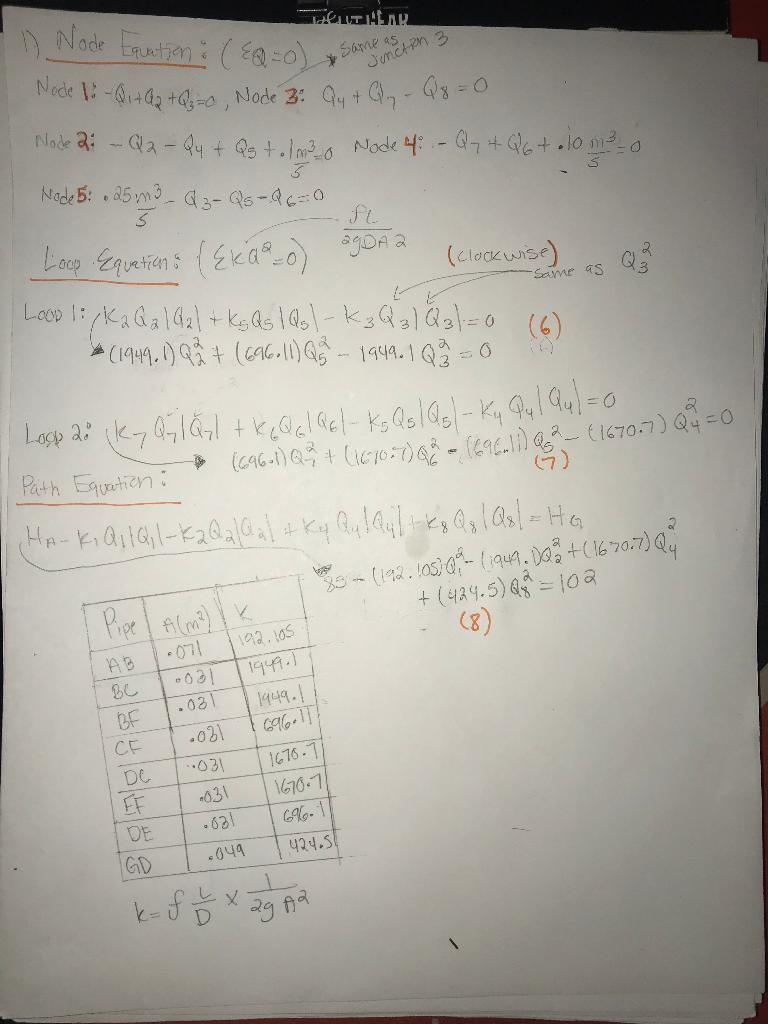 1) Node Equation: (ΣQ=0) Same as Junction 3
Node 1: -Q1+Q2+Q3=0, Node 3: Q4+Q7-Q8=0
Node 2: -Q2-Q4+Q5+.1 m³/s=0 Node 4: -Q7+Q6+.10 m³/s=0
Node 5: .25 m³/s -Q3-Q5-Q6=0
fL/2gDA2
Loop Equation: (ΣKQ²=0) (clockwise) same as Q3²
Loop 1: K2Q2|Q2|+K5Q5|Q5|-K3Q3|Q3|=0 (6)
(1949.1)Q2²+(696.11)Q5²-1949.1Q3²=0
Loop 2: K7Q7|Q7|+K6Q6|Q6|-K5Q5|Q5|-K4Q4|Q4|=0
(696.1)Q7²+(1670.7)Q6²-(696.11)Q5²-(1670.7)Q4²=0
(7)
Path Equation:
HA-K1Q1|Q1|-K2Q2|Q2|+K4Q4|Q4|+K8Q8|Q8|=HG
85-(192.105)Q1²-(1949.1)Q2²+(1670.7)Q4²
+(424.5)Q8²=102
(8)
Pipe A(m²) K
AB .071 192.105
BC .031 1949.1
BF .031 1949.1
CF .031 696.11
DC .031 1670.7
EF .031 1670.7
DE .031 696.1
GD .049 424.5
k=f L/D x 1/2gA²